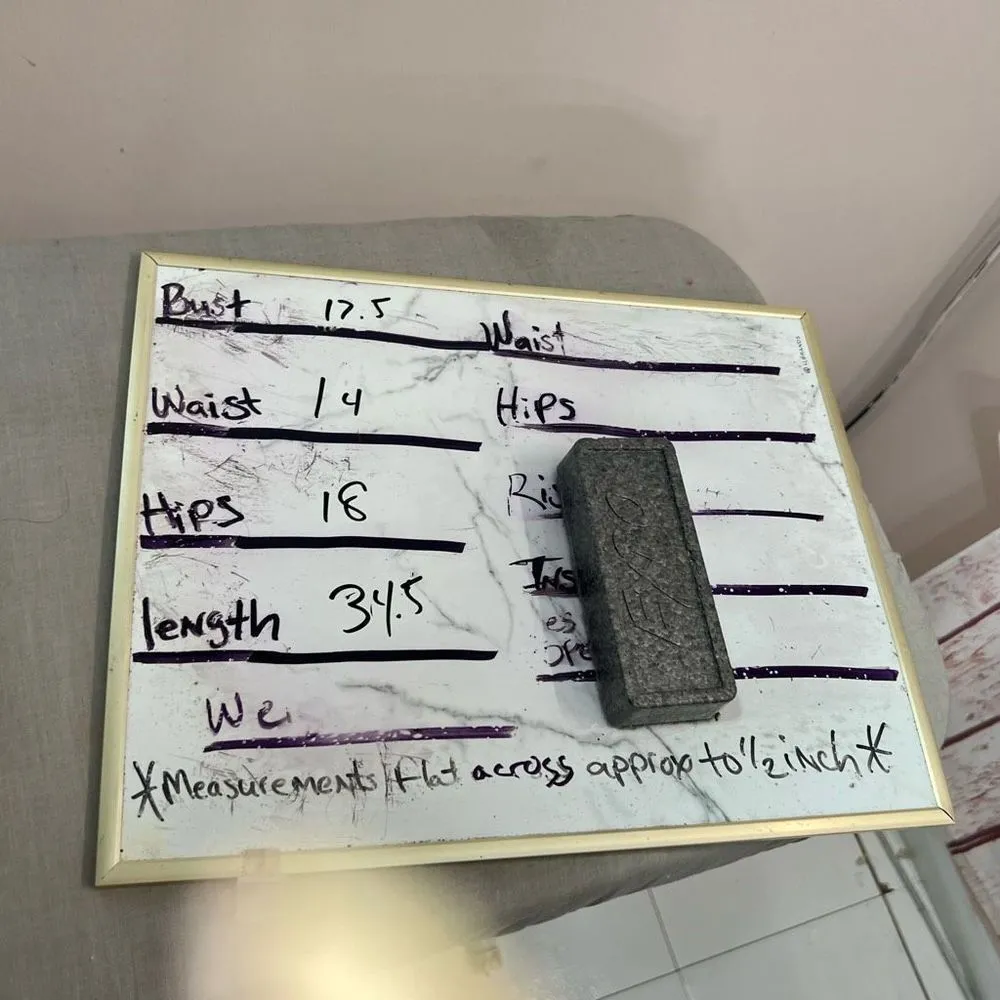 Bust 17.5
Waist 14
Hips 18
length 34.5
We
Waist
Hips
Ris
Ins
es
EXPO
*Measurements flat across approx to 1/2 inch*